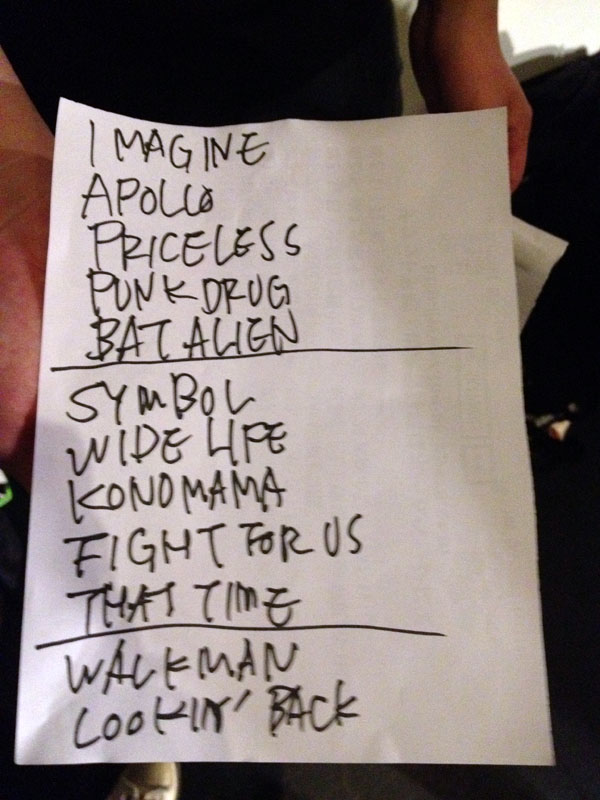 IMAGINE
APOLLO
PRICELESS
PUNK DRUG
BAT ALIEN
SYMBOL
WIDE LIFE
KONOMAMA
FIGHT FOR US
THAT TIME
WALKMAN
LOOKIN' BACK